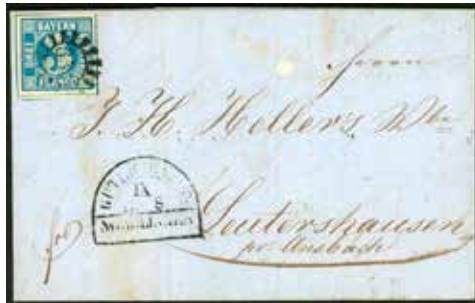 BAYERN
DREI
3
Herrn
J. H. Heller's Wbe
IX
Leutershausen
pr Ansbach
fro